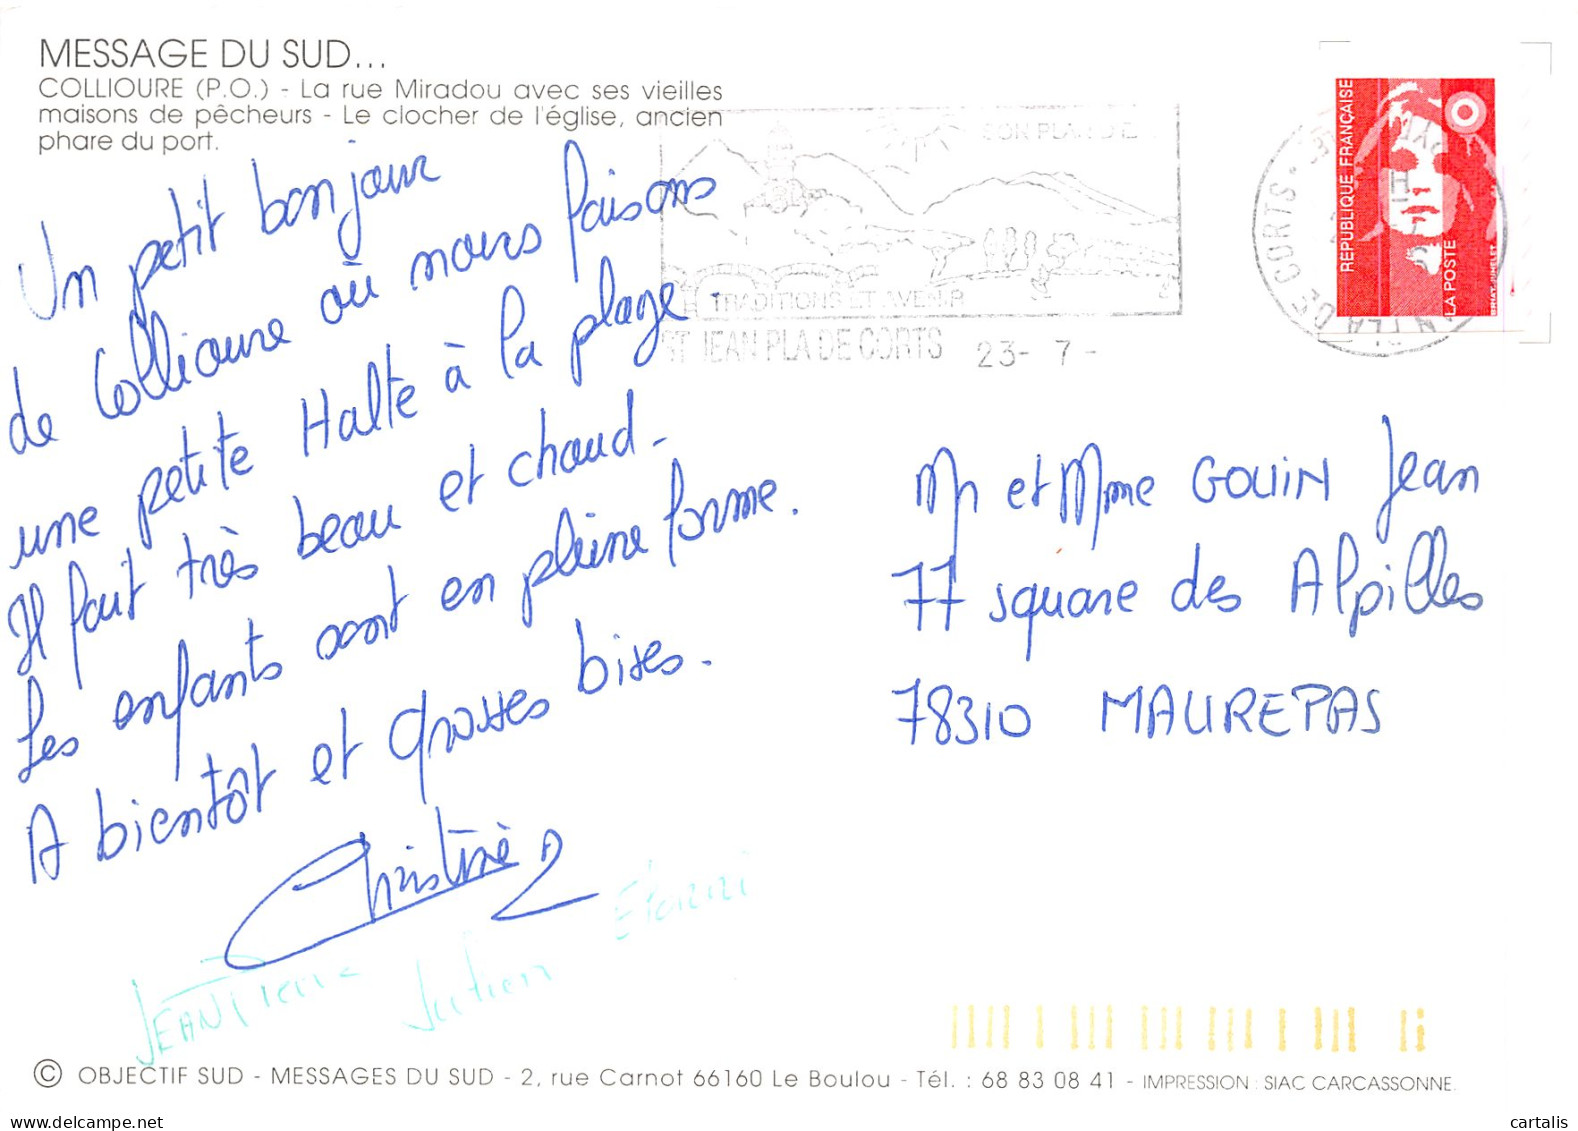 MESSAGE DU SUD...
COLLIOURE (P.O.) - La rue Miradou avec ses vieilles
maisons de pêcheurs - Le clocher de l'église, ancien
phare du port.
SON PLAN D'E
TRADITIONS ET AVENIR
ST JEAN PLA DE CORTS 23- 7 -
RÉPUBLIQUE FRANÇAISE
LA POSTE
BRIAT JUMELET
PLA DE CORTS
Un petit bonjour
de Collioure où nous faisons
une petite Halte à la plage.
Il fait très beau et chaud -
Les enfants sont en pleine forme.
A bientôt et grosses bises.
Christine
JEAN Pierre Julien
Mr et Mme GOUIN Jean
77 square des Alpilles
78310 MAUREPAS
© OBJECTIF SUD - MESSAGES DU SUD - 2, rue Carnot 66160 Le Boulou - Tél. : 68 83 08 41 - IMPRESSION : SIAC CARCASSONNE.
www.delcampe.net
cartalis